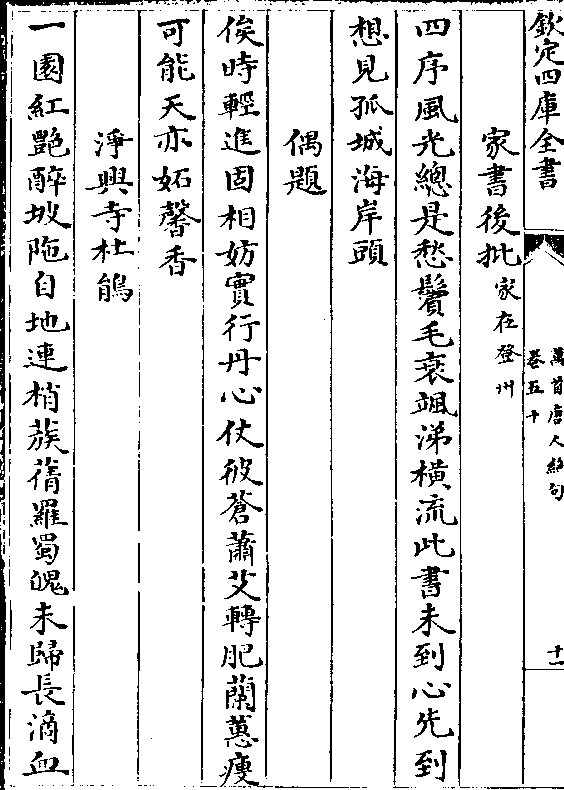 欽定四庫全書
萬首唐人絶句
卷五十
十一
家書後批家在登州
四序風光總是愁鬢毛衰颯涕橫流此書未到心先到
想見孤城海岸頭
偶題
俟時輕進固相妨實行丹心仗彼蒼蕭艾轉肥蘭蕙瘦
可能天亦妬馨香
淨興寺杜鵑
一園紅艷醉坡陁自地連梢簇蒨羅蜀魄未歸長滴血